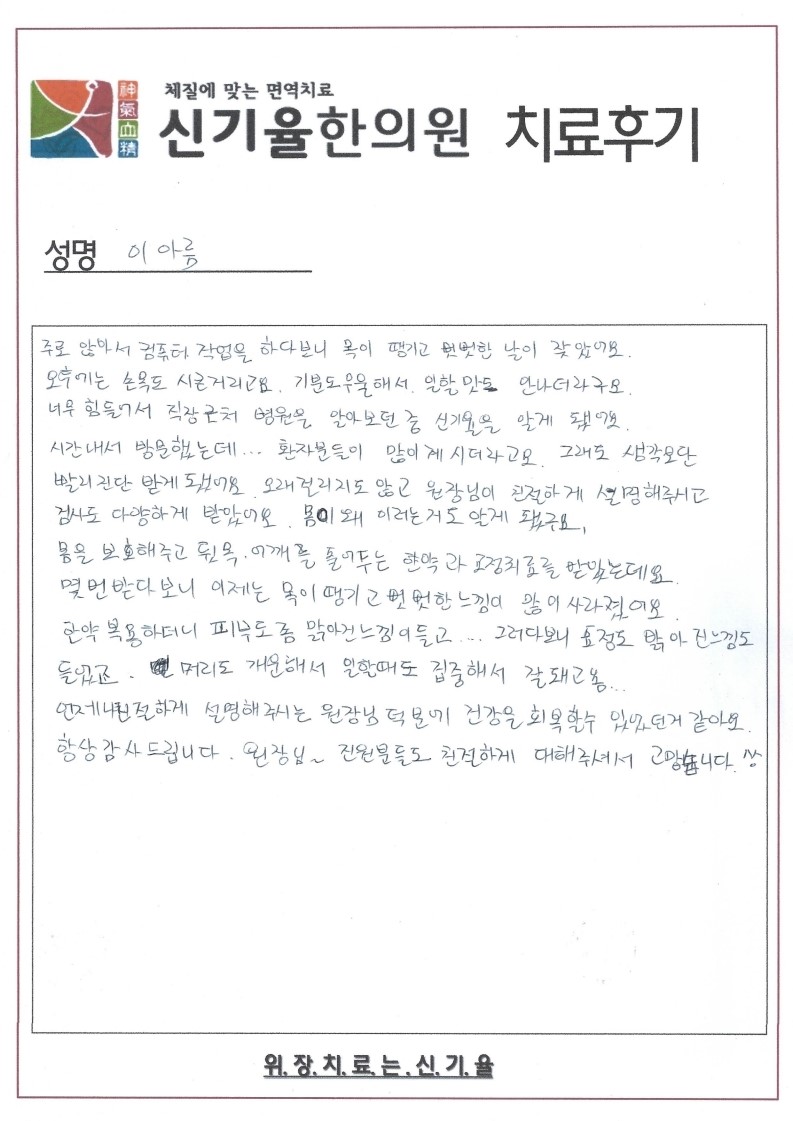 체질에 맞는 면역치료
神氣血精
신기율한의원 치료후기
성명 이아름
주로 앉아서 컴퓨터 작업을 하다보니 목이 땡기고 뻣뻣한 날이 잦았어요.
오후에는 손목도 시큰거리고요. 기분도우울해서 일할맛도 안나더라구요.
너무 힘들어서 직장근처 병원을 알아보던 중 신기율을 알게 됐어요.
시간내서 방문했는데... 환자분들이 많이계시더라고요. 그래도 생각보단
빨리진단 받게됐어요. 오래걸리지도 않고 원장님이 친절하게 설명해주시고
검사도 다양하게 받았어요. 몸이 왜 이러는거도 알게 됐구요,
몸을 보호해주고 뒷목, 어깨를 풀어두는 한약과 교정치료를 받았는데요.
몇번받다보니 이제는 목이땡기고뻣뻣한느낌이 많이사라졌어요.
한약복용하더니 피부도좀 맑아진느낌이들고... 그러다보니 표정도 밝아진느낌도
들었죠. 머리도 개운해서 일할때도 집중해서 잘돼고옴...
언제나친절하게 설명해주시는 원장님덕분에 건강을회복할수 있었던거 같아요.
항상감사드립니다. 원장님~ 직원분들도 친절하게 대해주셔서 고맙습니다. ^^
위.장.치.료.는.신.기.율